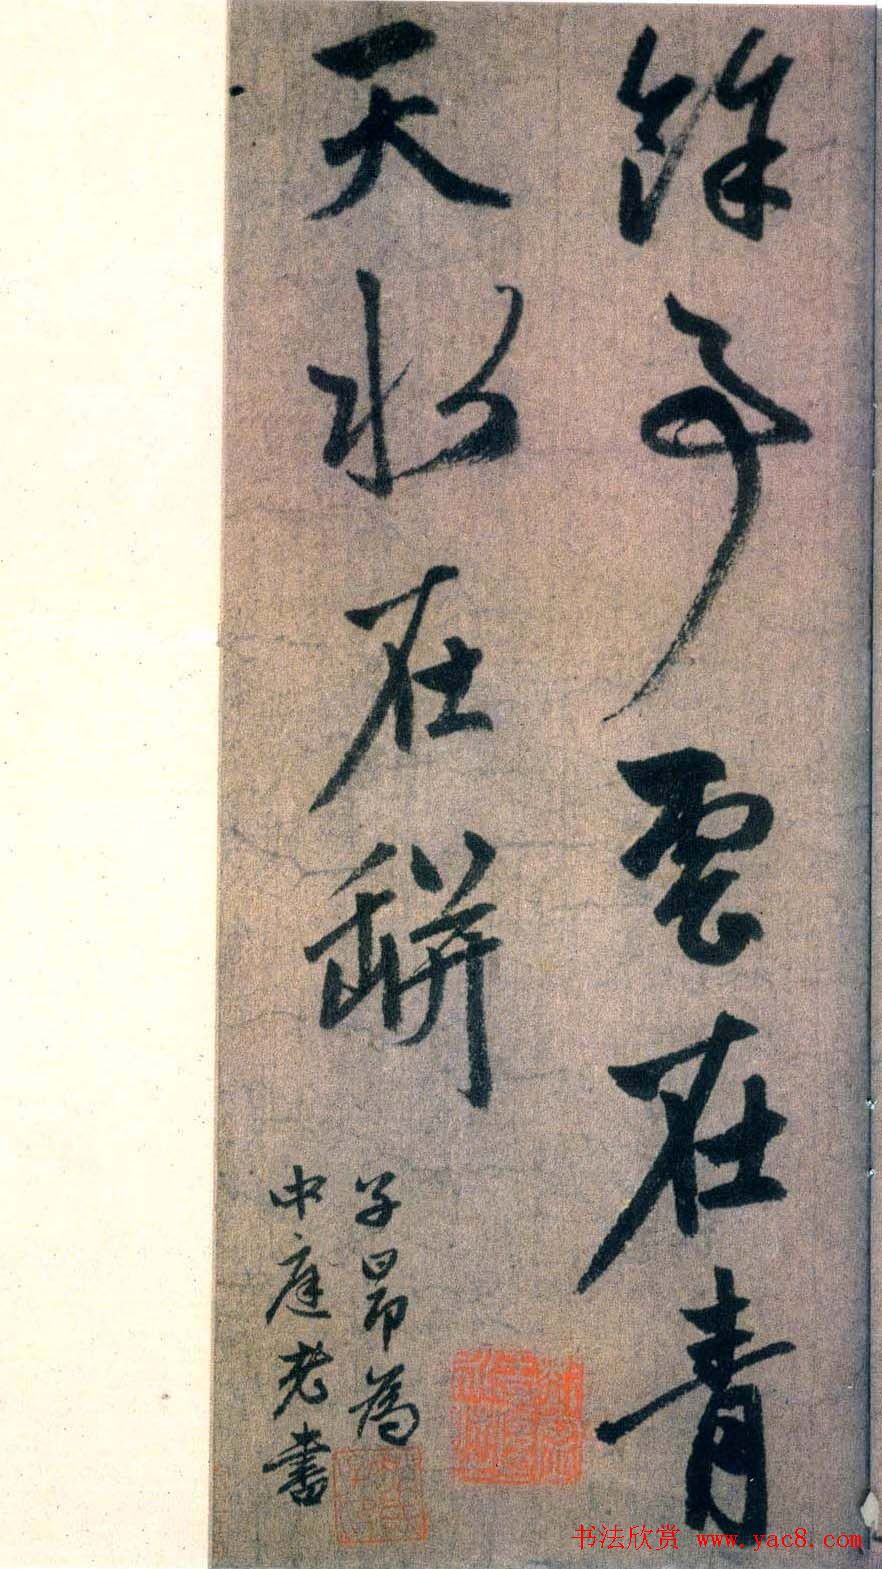 餘事雲在青
天水在缾
子昂為
中庭老書
书法欣赏 www.yac8.com